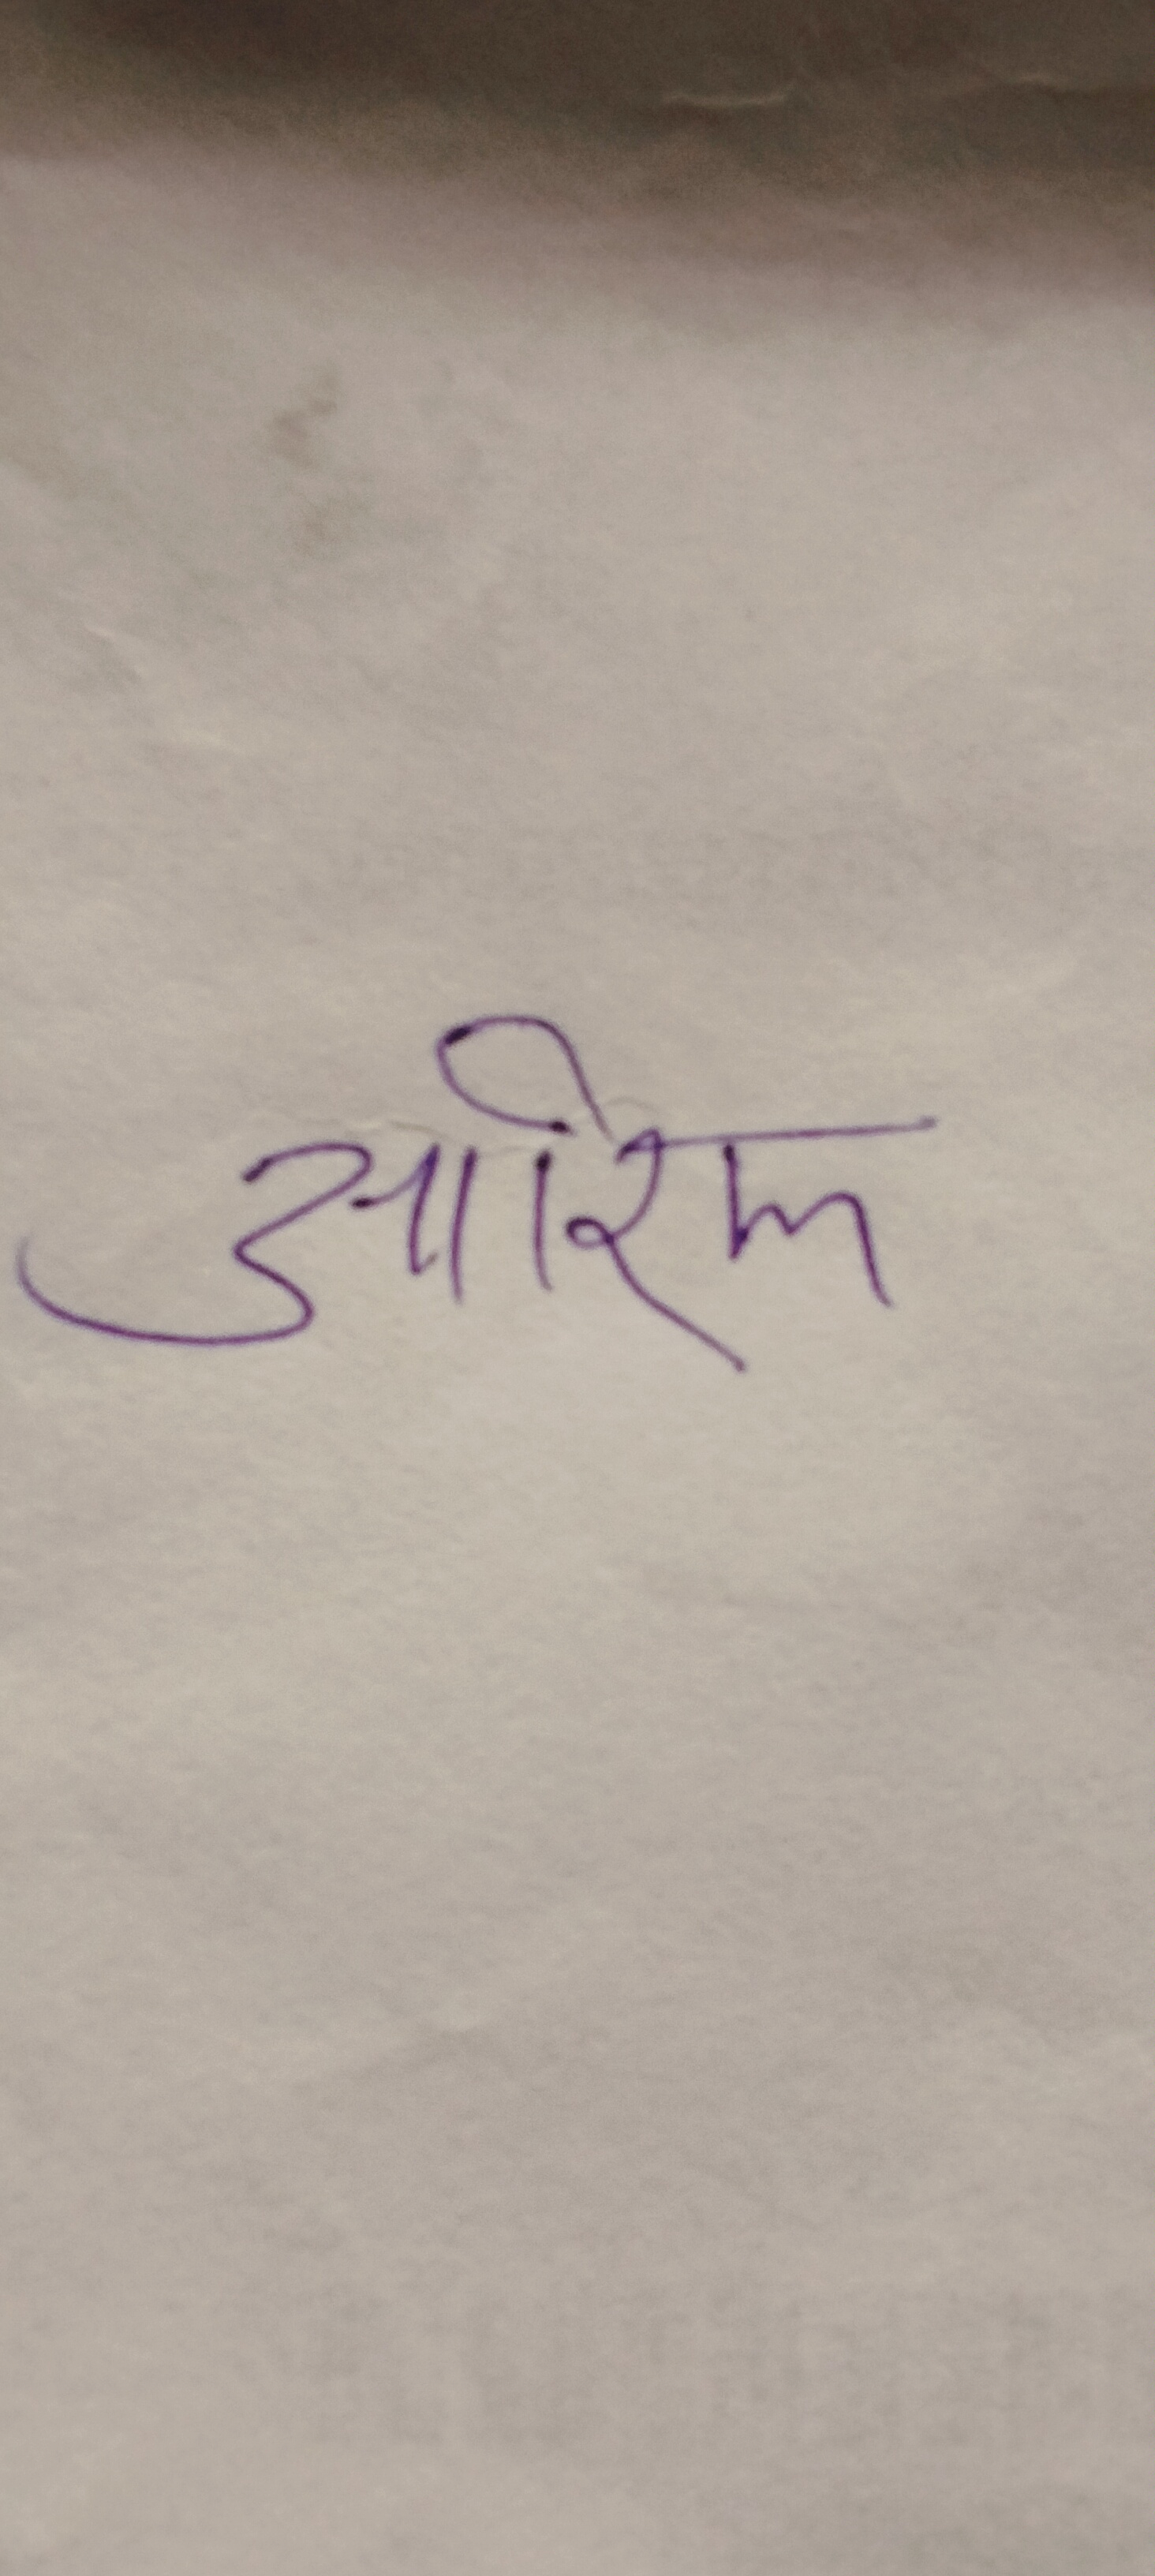 आरिफ